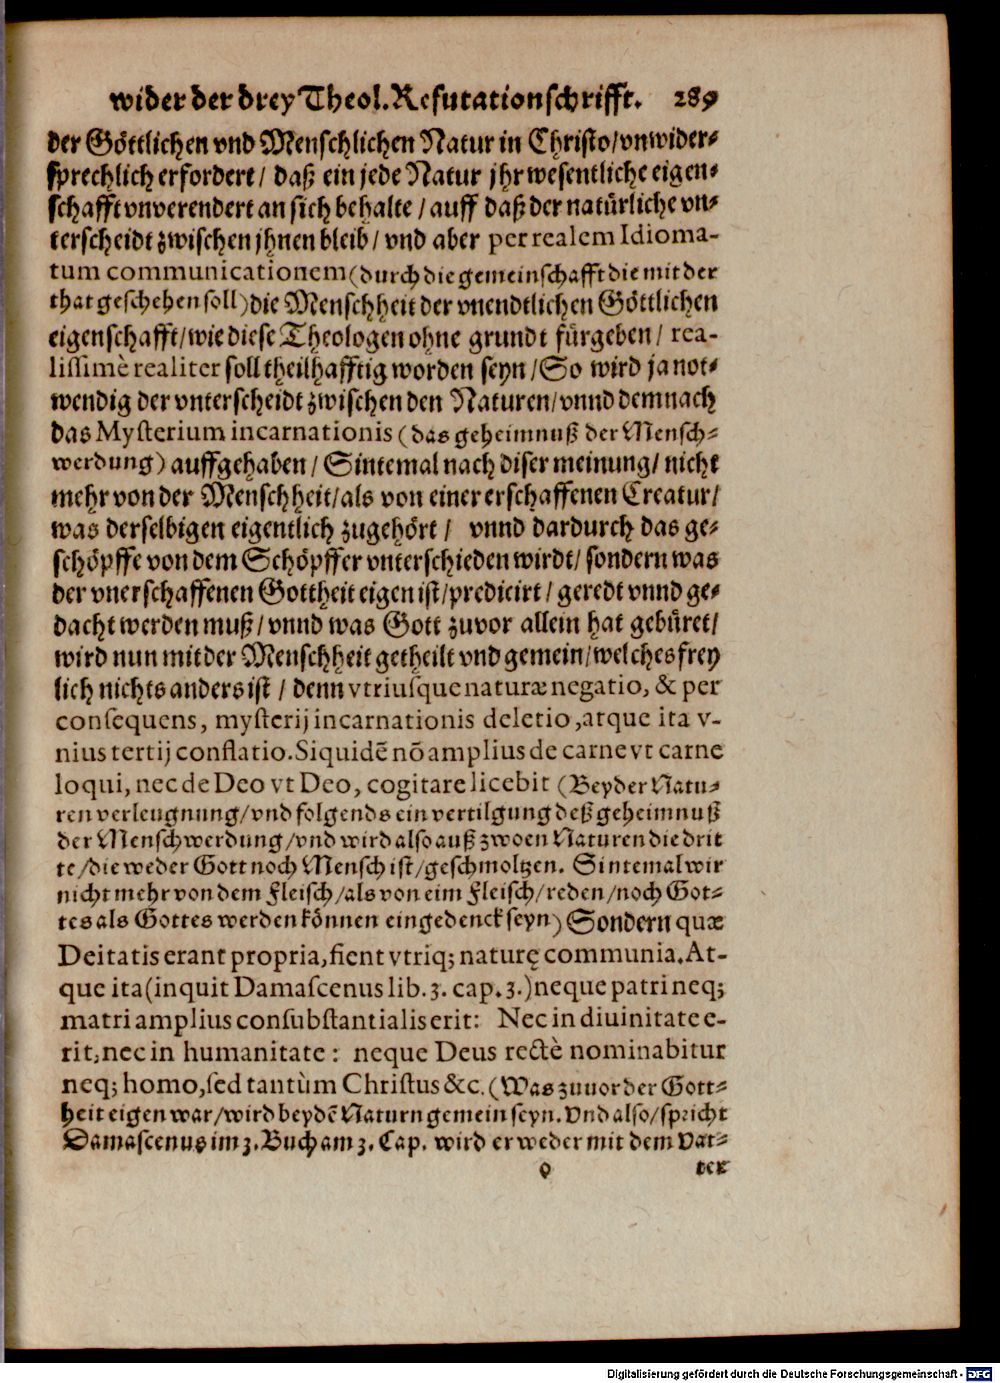 wider der drey Theol. Refutationschrifft. 289
der Göttlichen vnd Menschlichen Natur in Christo/vnwider-
sprechlich erfordert/ daß ein jede Natur jhr wesentliche eigen-
schafft vnverendert an sich behalte/ auff daß der natürliche vn-
terscheidt zwischen jhnen bleib/ vnd aber per realem Idioma-
tum communicationem (durch die gemeinschafft die mit der
that geschehen soll) die Menschheit der vnendtlichen Göttlichen
eigenschafft/wie diese Theologen ohne grundt fürgeben/ rea-
lissimè realiter soll theilhafftig worden seyn/So wird ja not-
wendig der vnterscheidt zwischen den Naturen/vnnd demnach
das Mysterium incarnationis (das geheimnuß der Mensch-
werdung) auffgehaben/ Sintemal nach diser meinung/ nicht
mehr von der Menschheit/als von einer erschaffenen Creatur/
was derselbigen eigentlich zugehört/ vnnd dardurch das ge-
schöpffe von dem Schöpffer vnterschieden wirdt/ sondern was
der vnerschaffenen Gottheit eigen ist/predicirt/ geredt vnnd ge-
dacht werden muß/ vnnd was Gott zuvor allein hat gebüret/
wird nun mit der Menschheit getheilt vnd gemein/welches frey
lich nichts anders ist/ denn vtriusque naturæ negatio, & per
consequens, mysterij incarnationis deletio, atque ita v-
nius tertij conflatio. Siquidē nō amplius de carne vt carne
loqui, nec de Deo vt Deo, cogitare licebit (Beyder Natu-
ren verleugnung/vnd folgends ein vertilgung deß geheimnuß
der Menschwerdung/vnd wird also auß zwoen Naturen die drit
te/die weder Gott noch Mensch ist/geschmoltzen. Sintemal wir
nicht mehr von dem Fleisch/als von eim Fleisch/reden/noch Got-
tes als Gottes werden können eingedenck seyn) Sondern quæ
Deitatis erant propria, fient vtriq; naturę communia. At-
que ita (inquit Damascenus lib. 3. cap. 3.) neque patri neq;
matri amplius consubstantialis erit: Nec in diuinitate e-
rit, nec in humanitate: neque Deus rectè nominabitur
neq; homo, sed tantùm Christus &c. (Was zuuor der Gott-
heit eigen war/wird beydē Naturn gemein seyn. Vnd also/spricht
Damascenus im 3. Buch am 3. Cap. wird er weder mit dem Vat-
ter
Digitalisierung gefördert durch die Deutsche Forschungsgemeinschaft - DFG